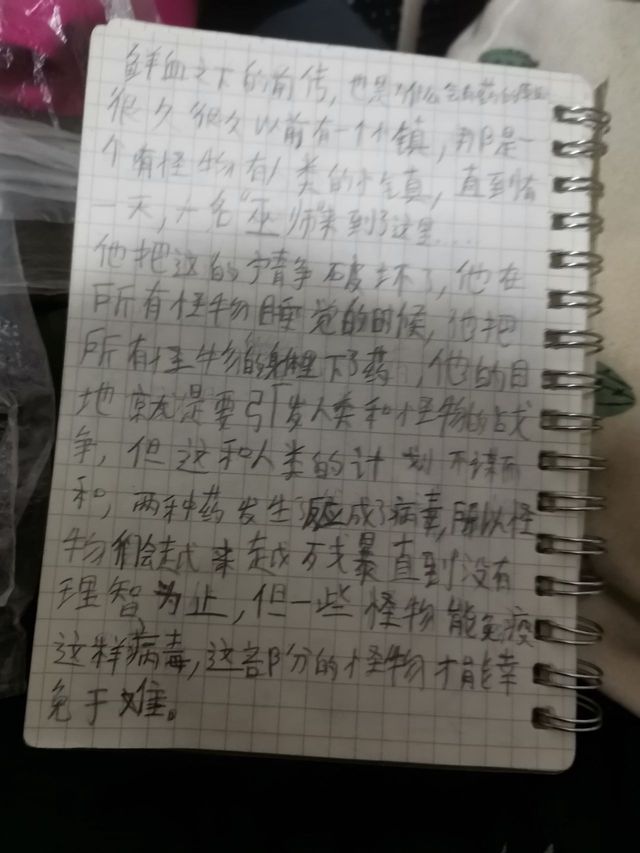 鲜血之下的前传,也是为什么会有药的原因
很久很久以前有一个小镇,那是一
个有怪物有人类的小镇,直到有
一天,一名“巫师”来到了这里...
他把这的宁静破坏了,他在
所有怪物睡觉的时候,他把
所有怪物的身体里下了药,他的目
地就是要引发人类和怪物的战
争,但这和人类的计划不谋而
和,两种药发生了反应成了病毒,所以怪
物们会越来越残暴直到没有
理智为止,但一些怪物能免疫
这样病毒,这部分的怪物才能幸
免于难。